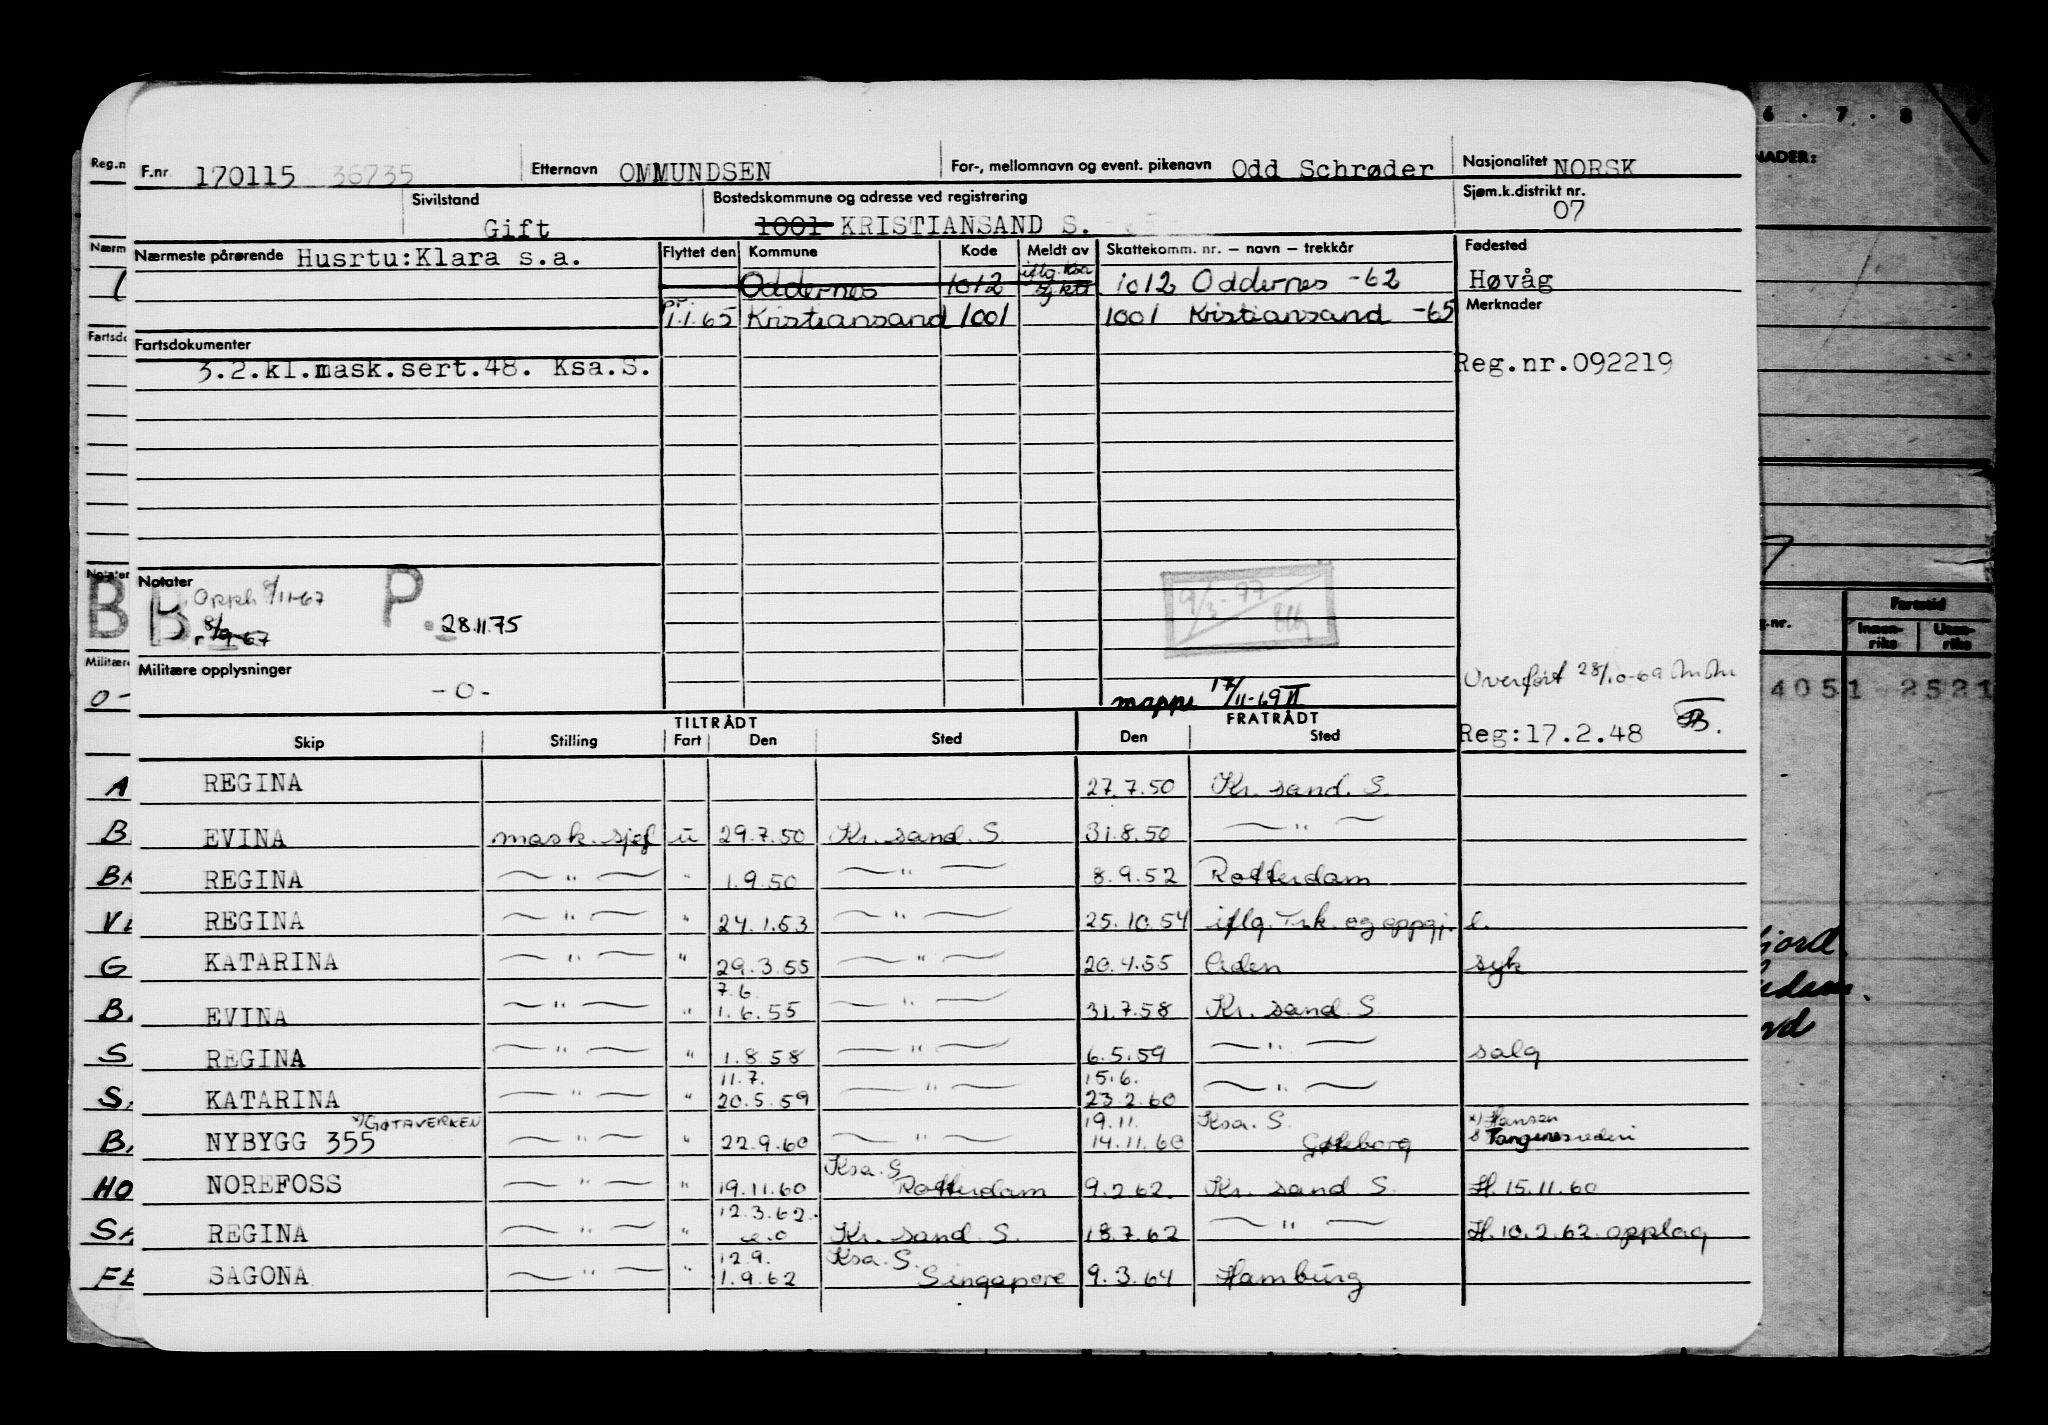 F.nr. 170115 36735 Etternavn OMMUNDSEN For-, mellomnavn og event. pikenavn Odd Schrøder Nasjonalitet NORSK
Sivilstand Gift Bostedskommune og adresse ved registrering 1001 KRISTIANSAND S. Sjøm.k.distrikt nr. 07
Nærmeste pårørende Husrtu:Klara s.a. Flyttet den Kommune Kode Meldt av Skattekomm. nr. — navn — trekkår Fødested
Oddernes 1012 iflg. 1012 Oddernes -62 Høvåg
pr. 1.1.65 Kristiansand 1001 1001 Kristiansand -65 Merknader
Fartsdokumenter
3.2.kl.mask.sert.48. Ksa.S. Reg.nr.092219
Notater
B Opph 8/11-67 P. 28.11.75 9/3-77
r 8/9-67
Militære opplysninger
-0-
Overført 28/10-69
mappe 17/11-69
TILTRÅDT FRATRÅDT
Reg:17.2.48
Skip Stilling Fart Den Sted Den Sted
REGINA 27.7.50 Kr. sand. S.
EVINA mask. sjef u 29.7.50 Kr. sand. S. 31.8.50 — " —
REGINA — " — " 1.9.50 — " — 8.9.52 Rotterdam
REGINA — " — " 24.1.53 — " — 25.10.54 iflg. Trk. og oppgj. l.
KATARINA — " — " 29.3.55 — " — 20.4.55 Aden syk
EVINA — " — " 7.6. 1.6.55 — " — 31.7.58 Kr. sand. S
REGINA — " — " 1.8.58 — " — 6.5.59 — " — salg
KATARINA — " — " 11.7. 20.5.59 — " — 15.6. 23.2.60 — " —
NYBYGG 355 x) GØTAVERKEN — " — " 22.9.60 — " — 19.11. 14.11.60 Ksa. S. Gøteborg x) Hansen & Tangensrederi
NOREFOSS — " — " 19.11.60 Ksa. S Rotterdam 9.2.62. Kr. sand S. H. 15.11.60
REGINA — " — " 12.3.62. e.o Kr. sand S. 18.7.62 — " — H. 10.2.62. opplag
SAGONA — " — " 12.9. 1.9.62 Ksa. S. Singapore 9.3.64 Hamburg
Reg.n
Nærm
Fartsdo
Notater
B
Militære
0-
A
B
BA
G
B.
S
S.
B.
HO
SA
FE
6 . 7 . 8
NADER:
Fartstid
.nr. Innen-riks Uten-riks
4051 2521